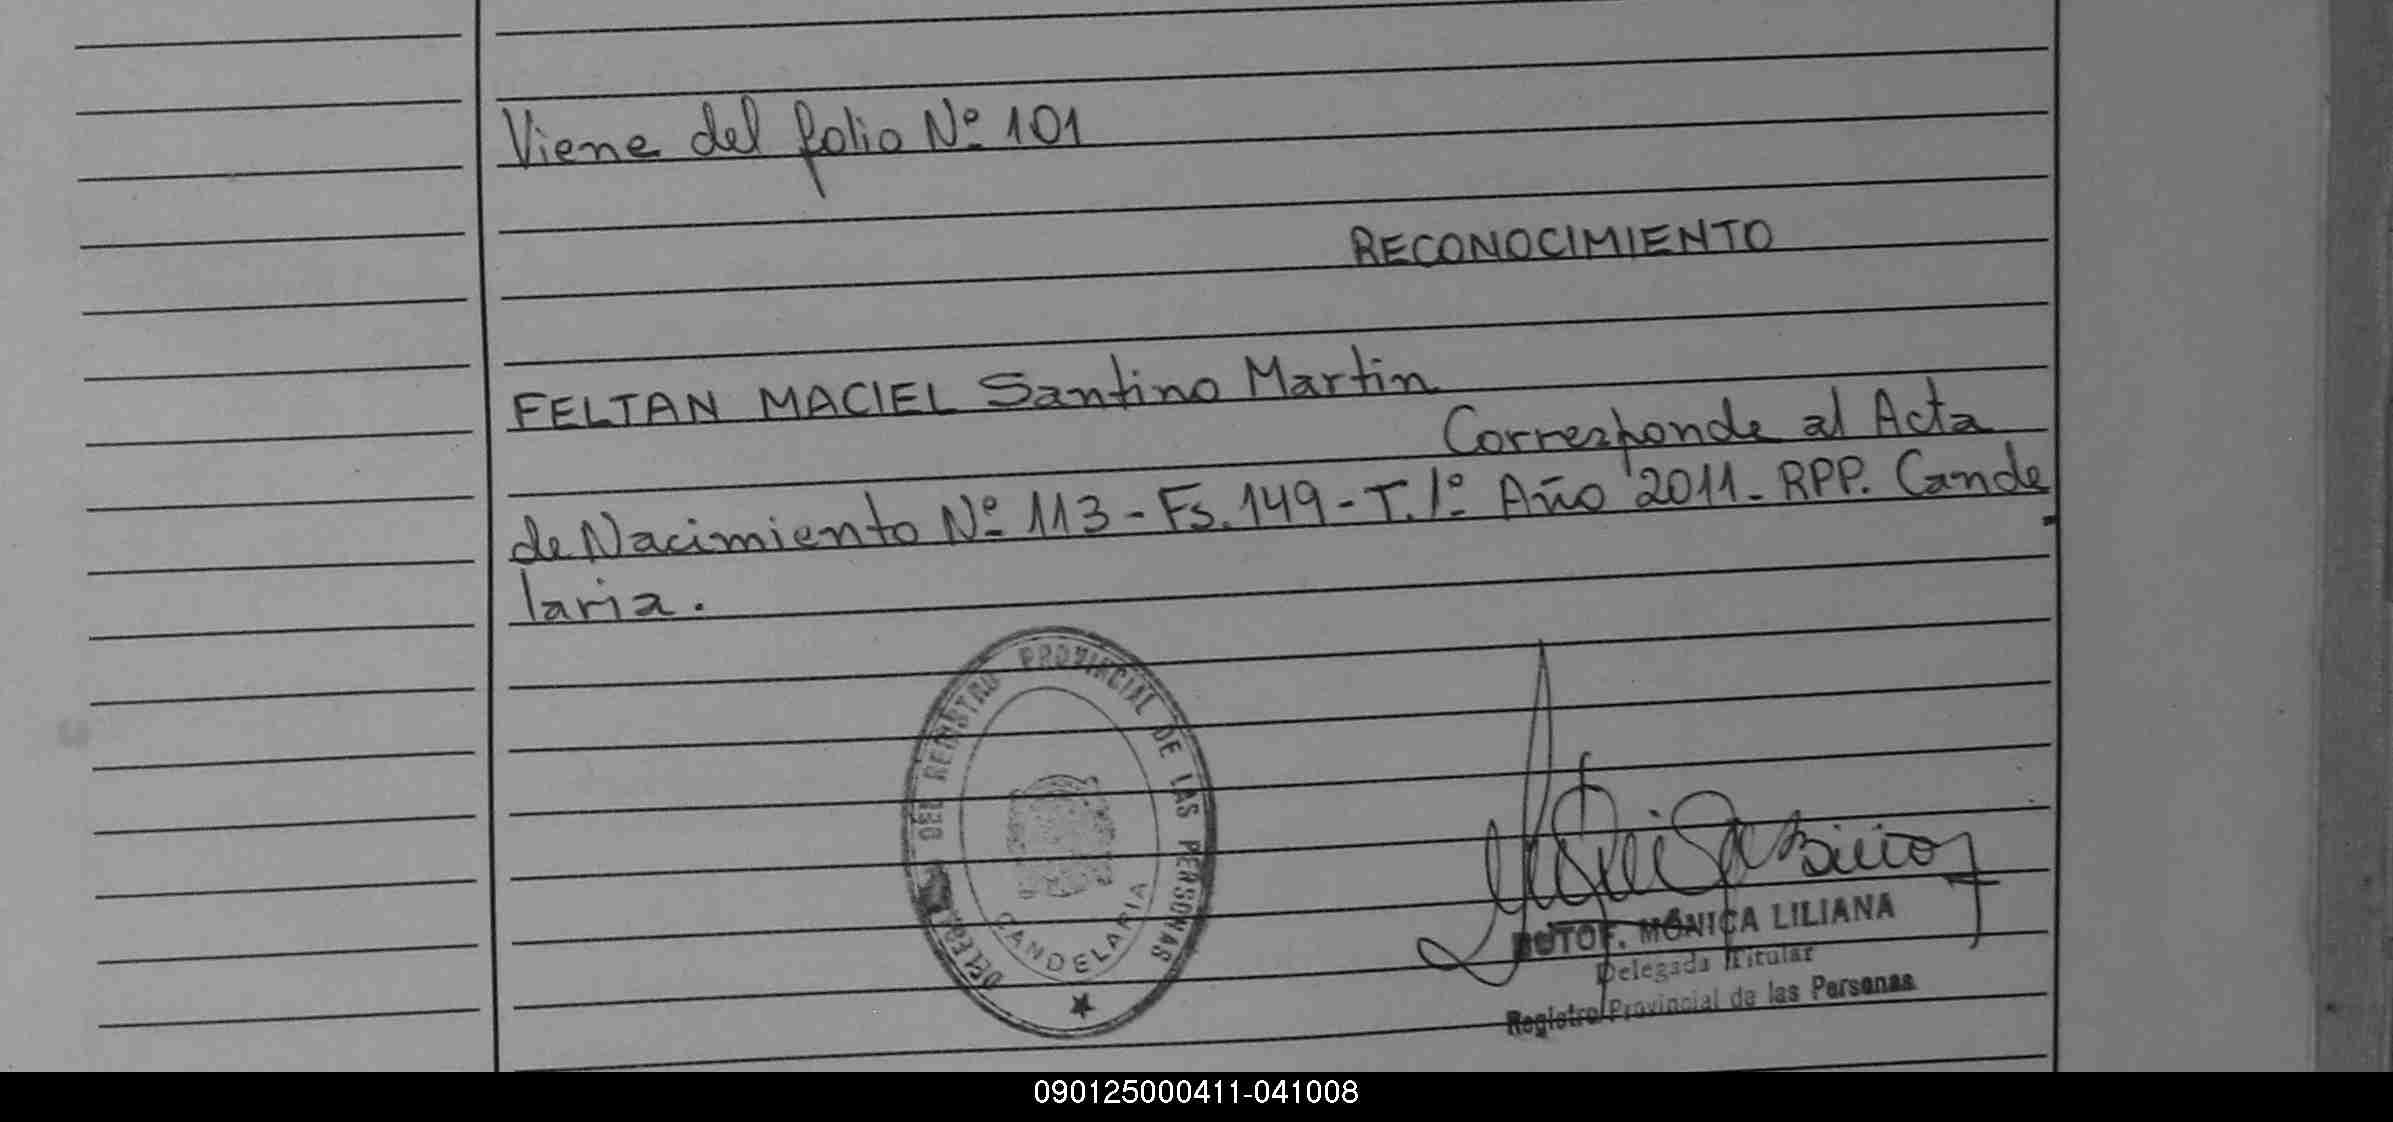 Viene del folio Nº 101
RECONOCIMIENTO
FELTAN MACIEL Santino Martin
Corresponde al Acta
de Nacimiento Nº 113 - Fs. 149 - T. 1º Año 2011 - RPP. Cande
laria.
DEL REGISTRO PROVINCIAL DE LAS PERSONAS
CANDELARIA
MÓNICA LILIANA
Delegada Titular
Registro Provincial de las Personas
090125000411-041008